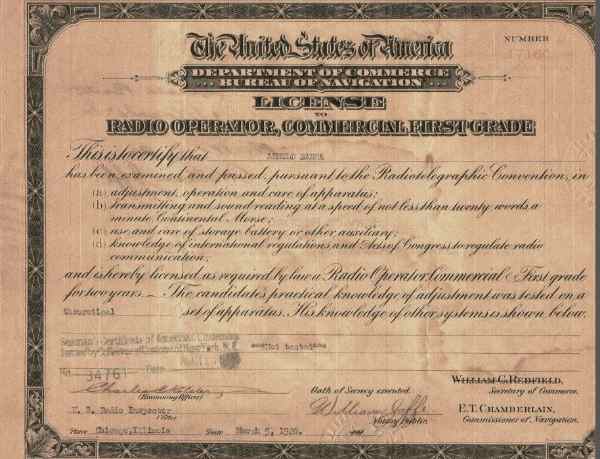 NUMBER
The United States of America
DEPARTMENT OF COMMERCE
BUREAU OF NAVIGATION
LICENSE
TO
RADIO OPERATOR, COMMERCIAL FIRST GRADE
This is to certify that
has been examined and passed, pursuant to the Radiotelegraphic Convention, in
(a) adjustment, operation and care of apparatus;
(b) transmitting and sound reading at a speed of not less than twenty words a
minute Continental Morse;
(c) use and care of storage battery or other auxiliary;
(d) knowledge of international regulations and Acts of Congress to regulate radio
communication;
and is hereby licensed as required by law a Radio Operator Commercial First grade
for two years. The candidate's practical knowledge of adjustment was tested on a
theoretical set of apparatus. His knowledge of other systems is shown below.
Seaman's Certificate of
Issued by New York N.Y.
No. 34761 Date
Not tested
(Examining Officer)
Oath of Secrecy executed.
William C. Redfield,
Secretary of Commerce.
U. S. Radio Inspector
(Title)
William
Notary Public.
E.T. Chamberlain,
Commissioner of Navigation.
Place Chicago, Illinois Date March 5, 1920.